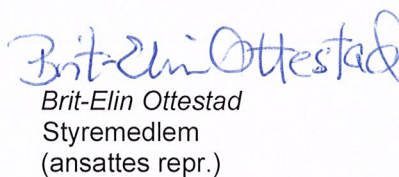 Brit-Elin Ottestad
Brit-Elin Ottestad
Styremedlem
(ansattes repr.)